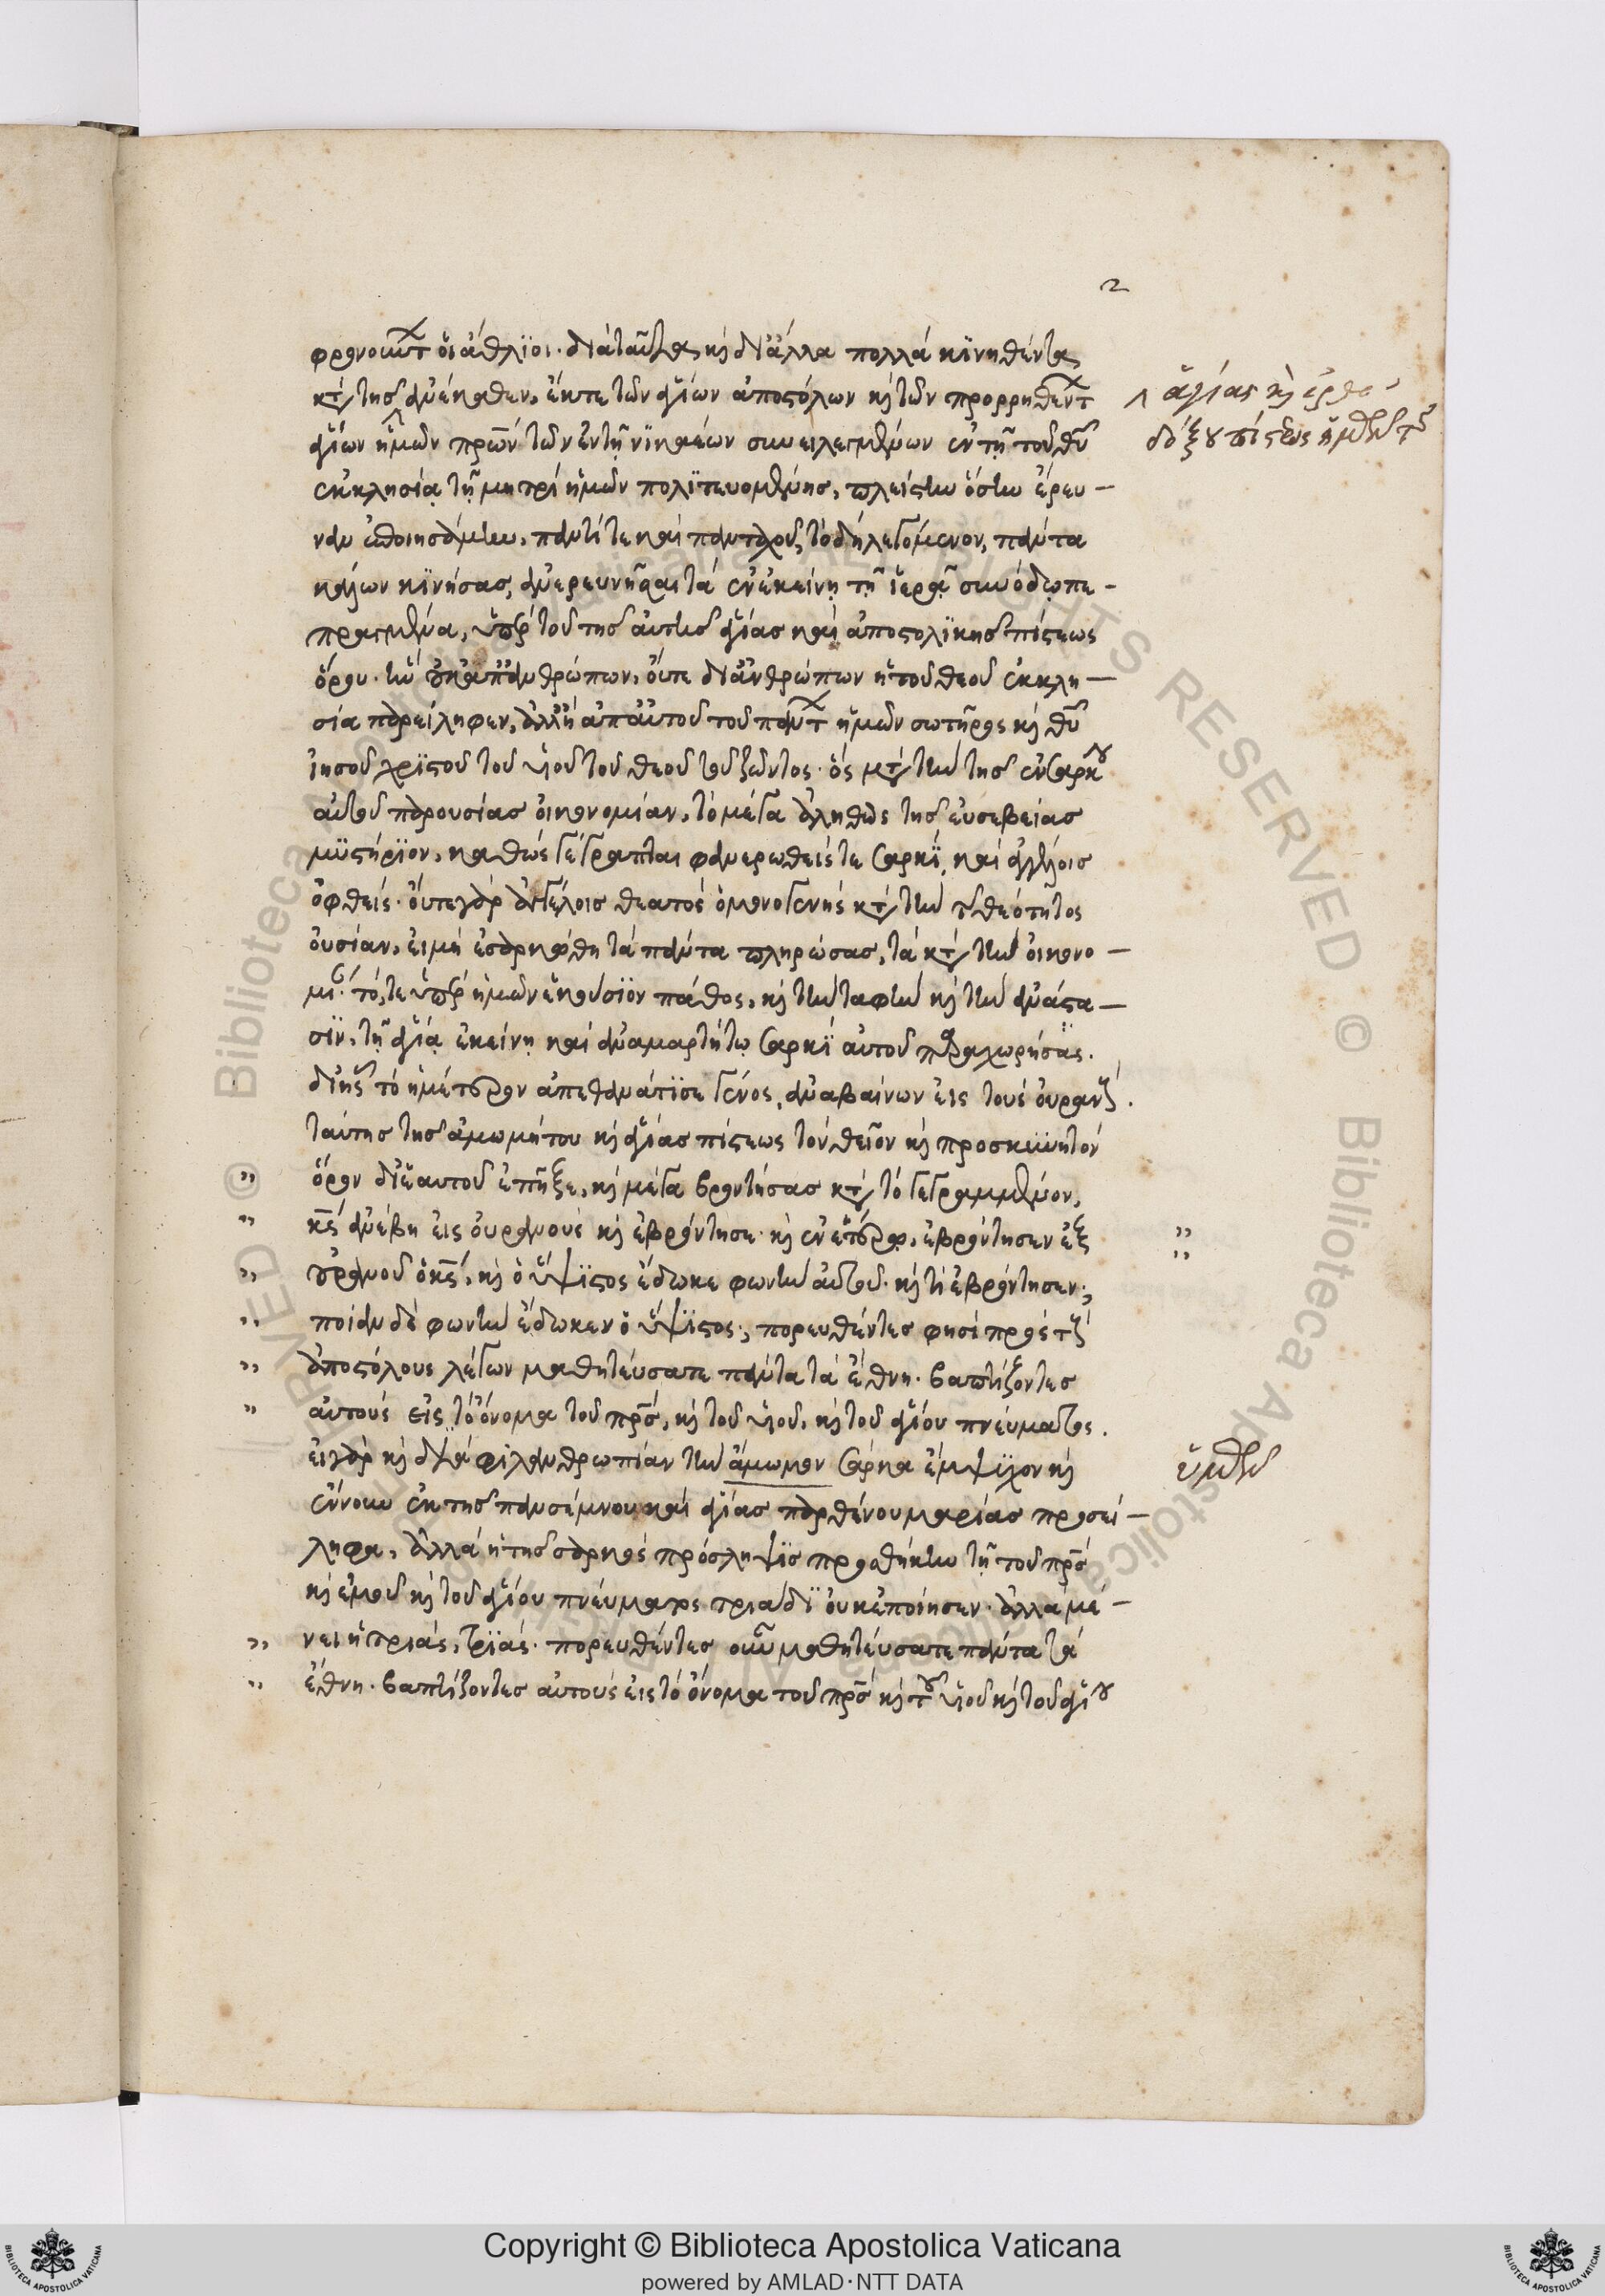 2
φρονοῦντ οἱ ἄθλϊοι. διὰ ταῦτα, κὶ δι' ἄλλα πολλὰ κϊνηθέντα
κτ τῆσ ἀνέκαθεν, ἔκ τε τῶν ἁγίων ἀποστόλων κὶ τῶν προρρηθέντ
^ ἁγίας κὶ ὀρθο
ἁγίων ἡμῶν πρῶν τῶν ἐν τῇ νϊκαέων συνειλεγμένων ἐν τῇ τοῦ θῦ
δόξου πίστεως ἡμῶν τ
ἐκκλησίᾳ τῇ μητρὶ ἡμῶν πολϊτευομένησ, πλείστην ὅσην ἔρευ—
ναν ἐποιησάμην, παντί τε καὶ πάντως, τὸ δὴ λεγόμενον, πάντα
κάλων κϊνήσας, ἀνερευνῆσαι τὰ ἐν ἐκείνῃ τῇ ἱερᾷ συνόδῳ πε-
πραγμένα, ὑπὲρ τοῦ τῆσ αὐτῆσ ἁγίασ καὶ ἀποστολϊκῆσ πίστεως
ὅρου. ἣν οὐκ ἀπ' ἀνθρώπων, οὔτε δι' ἀνθρώπων ἡ τοῦ θεοῦ ἐκκλη—
σία παρείληφεν, ἀλλ' ἢ ἀπ' αὐτοῦ τοῦ πάντ ἡμῶν σωτῆρος κὶ θῦ
ἰησοῦ χρϊστοῦ τοῦ υἱοῦ τοῦ θεοῦ τοῦ ζῶντος. ὃς μτ τὴν τῆσ ἐνσάρκου
αὐτοῦ παρουσίασ οἰκονομίαν, τὸ μέγα ἀληθῶς τῆσ εὐσεβείασ
μϋστήρϊον, καθὼς γέγραπται φανερωθείς τε σαρκῒ, καὶ ἀγγέλοισ
ὀφθείς. οὔτε γὰρ ἀγγέλοισ θεατὸς ὁ μονογενὴς κτ τὴν τ θεότητος
οὐσίαν, εἰ μὴ ἐσαρκώθη τὰ πάντα πληρώσασ, τὰ κτ τὴν οἰκονο—
μι. τό, τε ὑπὲρ ἡμῶν ἑκούσϊον πάθος, κὶ τὴν ταφὴν κὶ τὴν ἀνάστα—
σϊν, τῇ ἁγίᾳ ἐκείνῃ καὶ ἀναμαρτήτῳ σαρκῒ αὐτοῦ παραχωρήσας.
δι' ἧς τὸ ἡμέτερον ἀπεθανάτϊσε γένος, ἀναβαίνων εἰς τοὺς οὐρανούς.
ταύτησ τῆσ ἀμωμήτου κὶ ἁγίασ πίστεως τὸν θεῖον κὶ προσκυνητὸν
" ὅρον δι' ἑαυτοῦ ἔπηξε, κὶ μέγα βροντήσασ κτ τὸ γεγραμμένον,
" κς ἀνέβη εἰς οὐρανοὺς κὶ ἐβρόντησε. κὶ ἐν ἑτέρῳ, ἐβρόντησεν ἐξ "
" οὐρανοῦ ὁ κς, κὶ ὁ ὕψϊστος ἔδωκε φωνὴν αὐτοῦ. κὶ τί ἐβρόντησεν; "
" ποίαν δὲ φωνὴν ἔδωκεν ὁ ὕψϊστος; πορευθέντεσ φησὶ πρὸς τοὺς
" ἀποστόλους λέγων μαθητεύσατε πάντα τὰ ἔθνη. βαπτίζοντεσ
" αὐτοὺς εἰς τὸ ὄνομα τοῦ πρς, κὶ τοῦ υἱοῦ, κὶ τοῦ ἁγίου πνεύματος.
εἰ γὰρ κὶ διὰ φιλανθρωπίαν τὴν ἄμωμον σάρκα ἔμψϋχον κὶ
ὑμῶν
ἔννουν ἐκ τῆσ πανσέμνου καὶ ἁγίασ παρθένου μαρίασ προσεί—
ληφα, ἀλλὰ ἡ τῆσ σαρκὸς πρόσληψϊσ προσθήκην τῇ τοῦ πρς
κὶ ἐμοῦ κὶ τοῦ ἁγίου πνεύματος τριάδϊ οὐκ ἐποίησεν. ἀλλὰ μέ—
" νει ἡ τριάς, τρϊάς. πορευθέντεσ οὖν μαθητεύσατε πάντα τὰ
" ἔθνη. βαπτίζοντεσ αὐτοὺς εἰς τὸ ὄνομα τοῦ πρς κὶ τοῦ υἱοῦ κὶ τοῦ ἁγίου
Copyright © Biblioteca Apostolica Vaticana
powered by AMLAD·NTT DATA